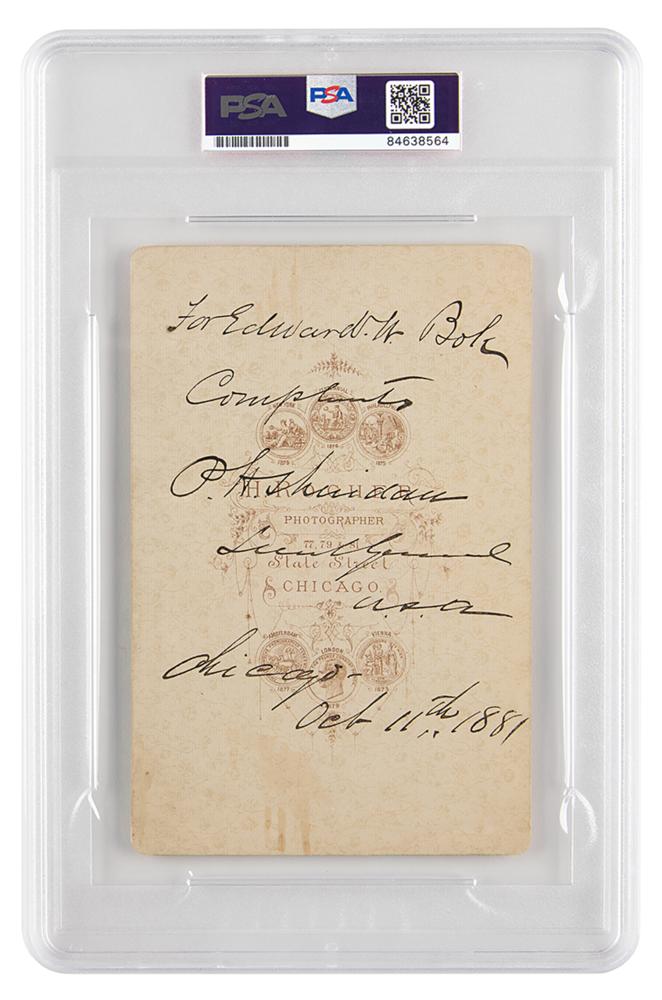 PSA
PSA
84638564
For Edward. W Bok
Compliments
NEW YORK
CENTENNIAL
PHILADELPHIA
1873
1876
1875
P. H Sheridan
H. ROCHER
PHOTOGRAPHER
77, 79 & 81
Lieut General
State Street
CHICAGO.
U.S.A
AMSTERDAM
LONDON
VIENNA
Chicago-
1877
1873
Oct 11th 1881